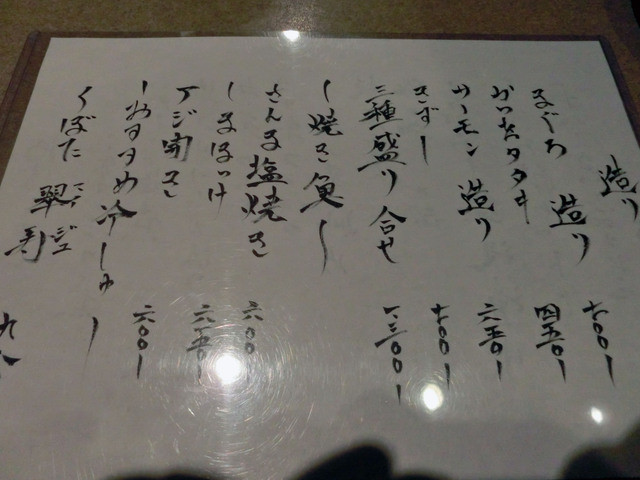 造り
まぐろ 造り 七〇〇ー
かつをタタキ 四五〇ー
サーモン 造り 六五〇ー
きずし 七〇〇ー
三種盛り合せ 一三〇〇ー
ー焼き魚ー
さんま塩焼き 六〇〇
しまほっけ 六五〇
アジ開き 六〇〇ー
ーおすすめ冷しゅー
くぼた 翠寿 九八